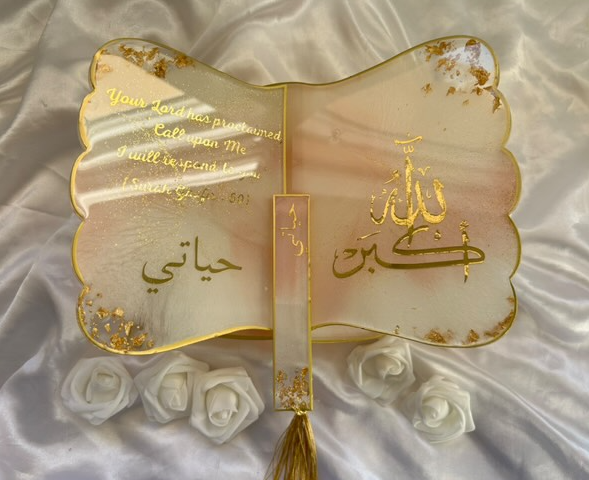 Your Lord has proclaimed
Call upon Me
I will respond to you
(Surah Ghafir - 60)
حياتي
حياتي
الله
أكبر